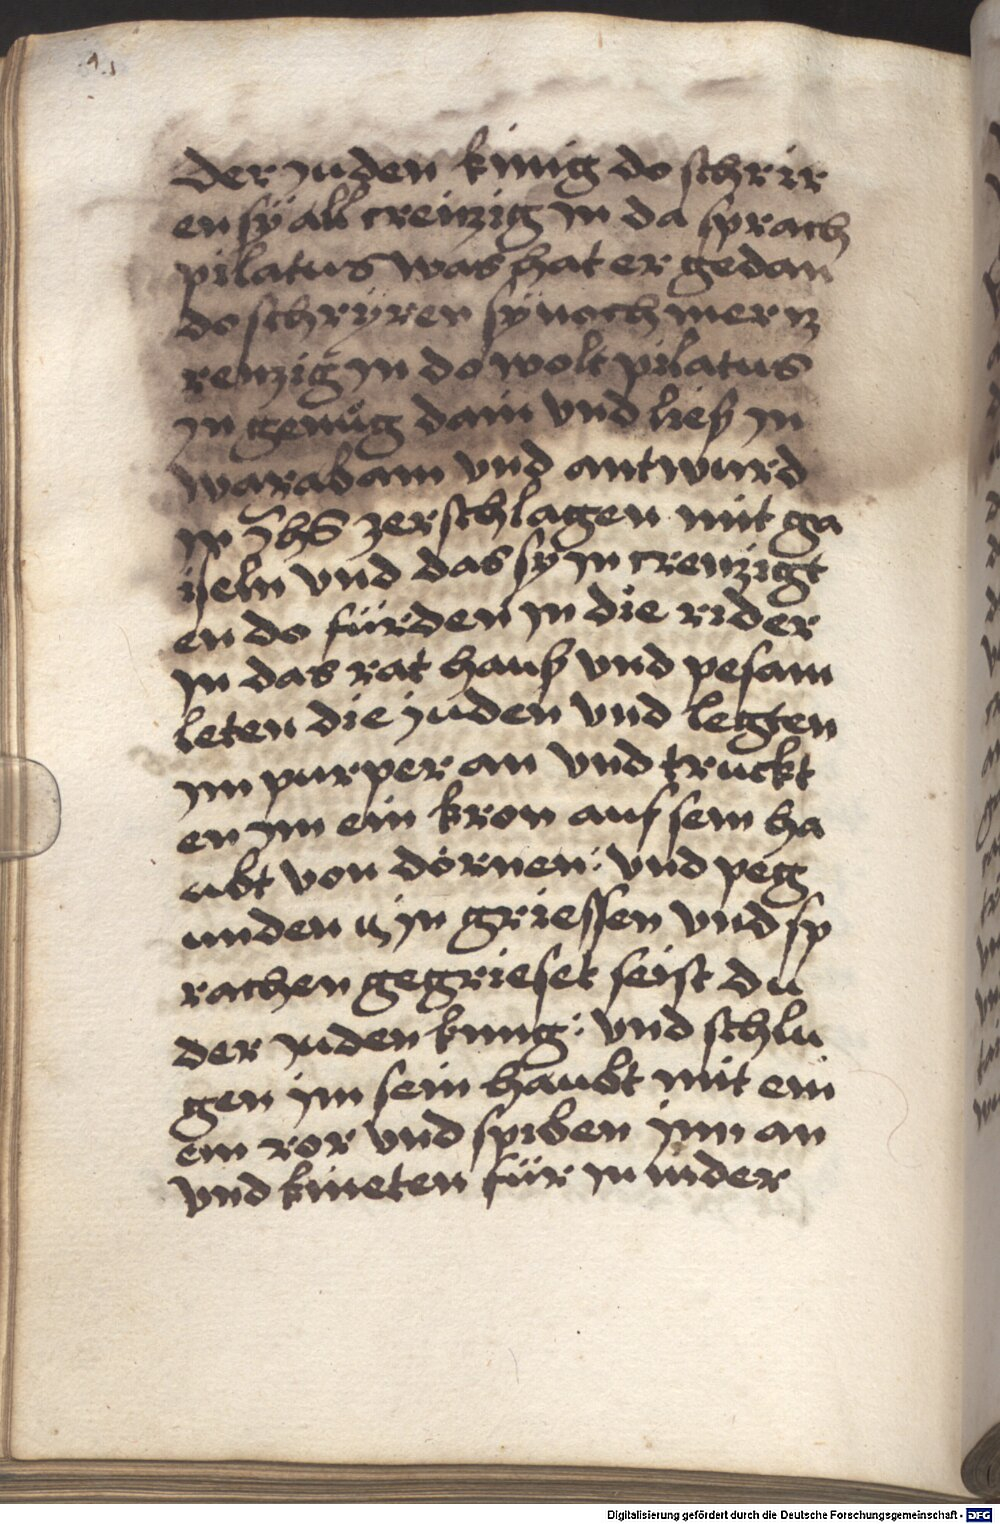 der juden kinig do schrir
en sÿ all creinzig in da sprach
pilatus was hat er gedan
do schryren sy noch mer cz
renzig in do wolt pilatus
in genüg dain vnd ließ in
warabam vnd antwurd
in jhs zerschlagen mit ga
iseln vnd das sy in creuzigt
en do fürden in die rider
in das rat hauß vnd pesam
leten die juden vnd legten
im purper an vnd truckt
en im ein kron auf sein ha
ubt von dörnen: vnd peg
unden in griessen vnd sp
rachen gegrieset seist du
der juden kunig: vnd schlu
gen im sein haubt mit ein
em ror vnd spiben imm an
vnd knieten für in nider
Digitalisierung gefördert durch die Deutsche Forschungsgemeinschaft - DFG